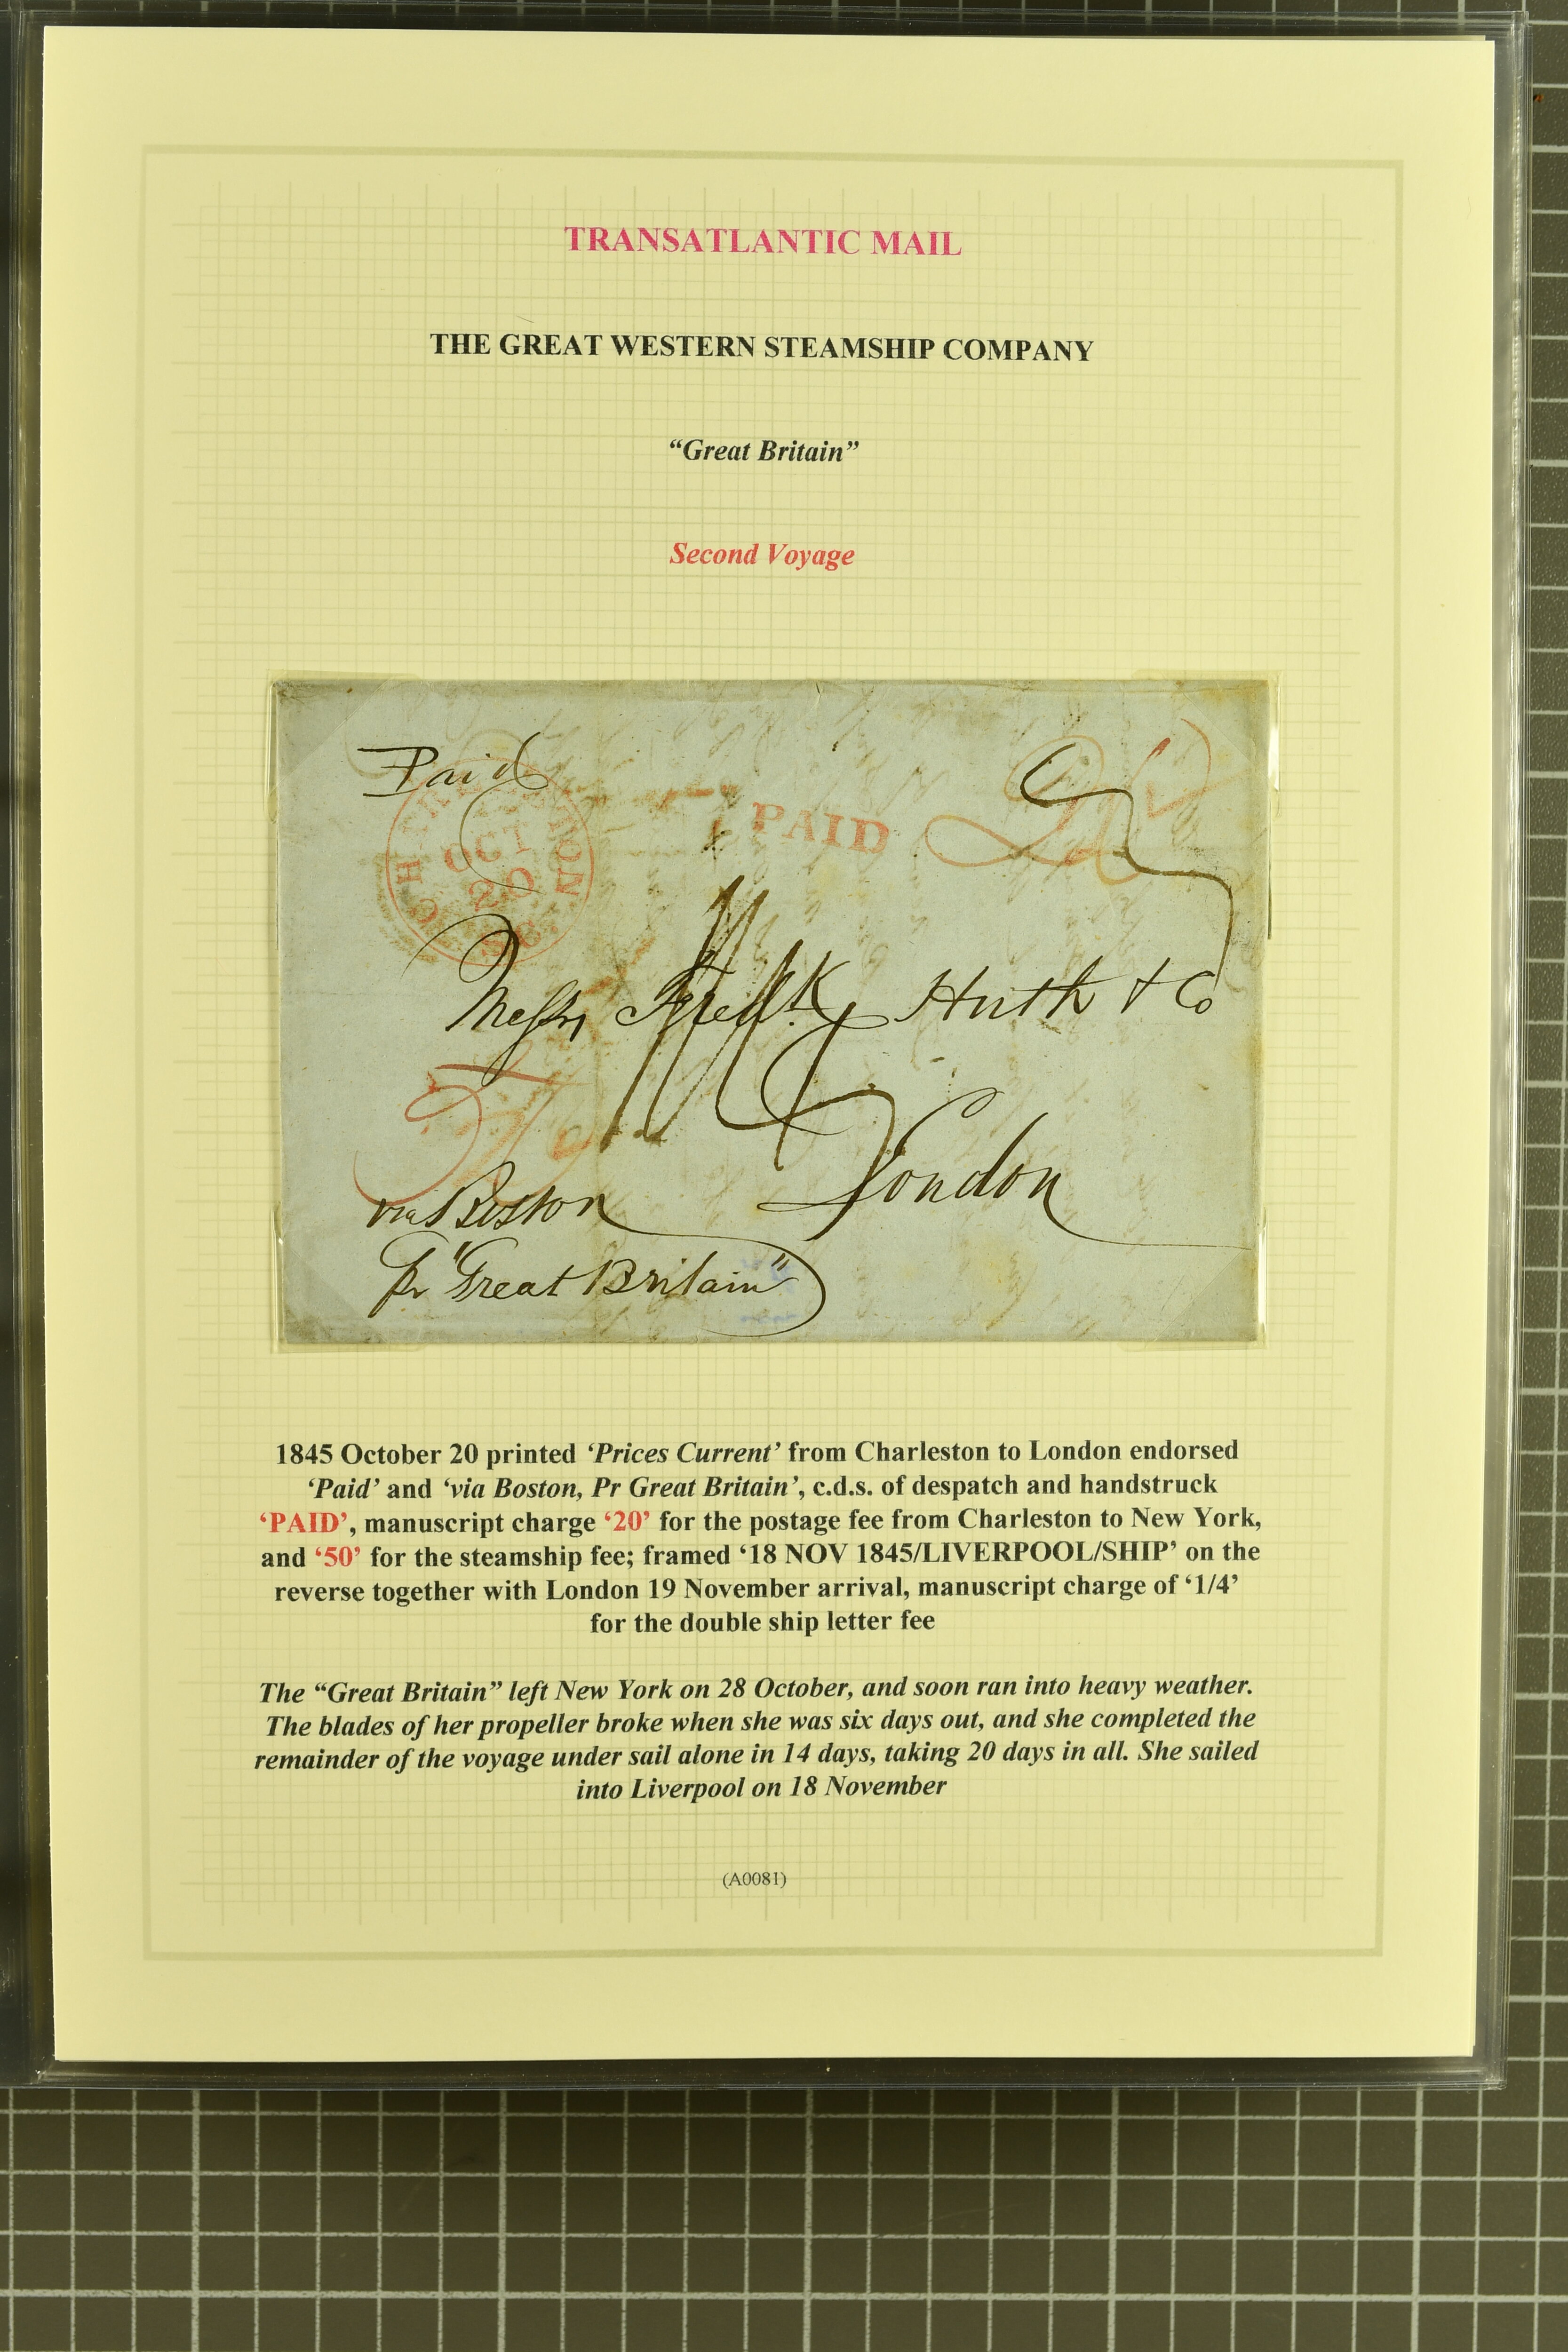 TRANSATLANTIC MAIL
THE GREAT WESTERN STEAMSHIP COMPANY
“Great Britain”
Second Voyage
Paid
CHARLESTON
OCT
20
SC
PAID
20
Messrs Fredk Huth & Co
1/4
50
London
via Boston
Pr "Great Britain"
1845 October 20 printed ‘Prices Current’ from Charleston to London endorsed
‘Paid’ and ‘via Boston, Pr Great Britain’, c.d.s. of despatch and handstruck
‘PAID’, manuscript charge ‘20’ for the postage fee from Charleston to New York,
and ‘50’ for the steamship fee; framed ‘18 NOV 1845/LIVERPOOL/SHIP’ on the
reverse together with London 19 November arrival, manuscript charge of ‘1/4’
for the double ship letter fee
The “Great Britain” left New York on 28 October, and soon ran into heavy weather.
The blades of her propeller broke when she was six days out, and she completed the
remainder of the voyage under sail alone in 14 days, taking 20 days in all. She sailed
into Liverpool on 18 November
(A0081)